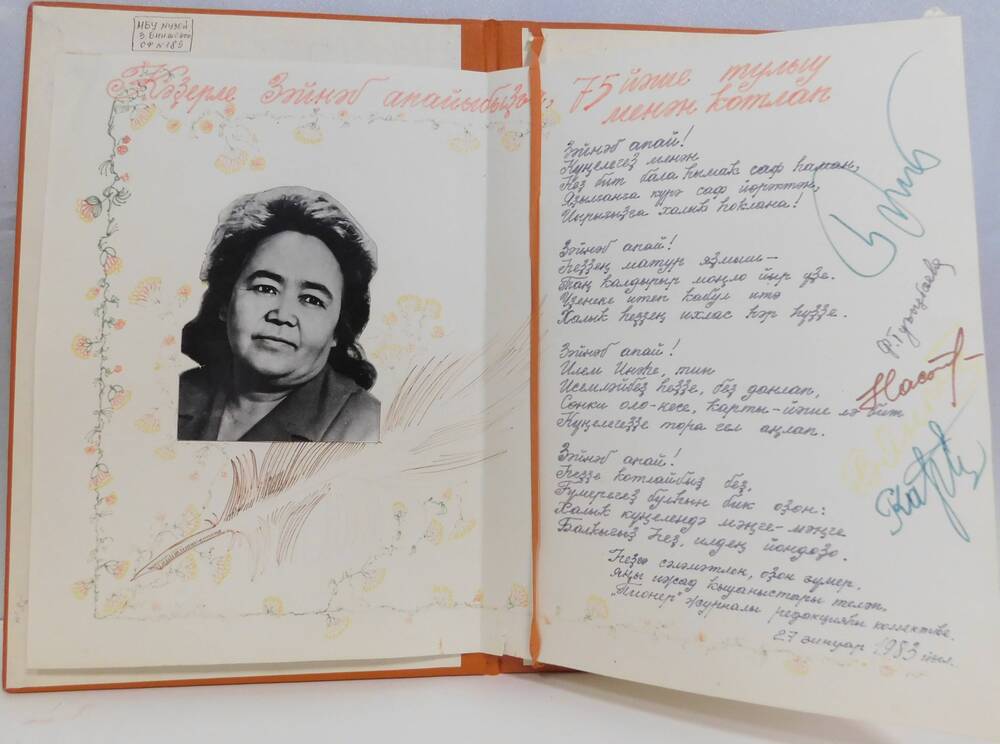 МБУ музей
З. Биишевой
ОФ № 185
Ҡәҙерле Зәйнәб апайыбыҙҙы
75 йәше тулыу
менән котлап
Зәйнәб апай!
Күңелегеҙ менән
Һеҙ бит бала һымаҡ саф һаман,
Яҙылғанға күрә саф йөрәктән,
Йырығыҙға халыҡ һоҡлана!
Зәйнәб апай!
Һеҙҙең матур яҙмыш –
Таң ҡалдырыр моңло йыр үҙе.
Үҙенеке итеп ҡабул итә
Халыҡ һеҙҙең ихлас һәр һүҙҙе.
Зәйнәб апай!
Илем Инәһе, тип
Исемләйбеҙ һеҙҙе, беҙ данлап,
Сөнки оло-кесе, ҡарты-йәше лә бит
Күңелегеҙҙе тора гел аңлап.
Зәйнәб апай!
Һеҙҙе котлайбыҙ беҙ,
Ғүмерегеҙ булһын бик оҙон:
Халыҡ күңелендә мәңге-мәңге
Балҡығыҙ Һеҙ, илдең йондоҙо.
Һеҙгә сәләмәтлек, оҙон ғүмер.
Яңы ижад ҡыуаныстары теләп,
„Пионер" журналы редакцияһы коллективы.
27 ғинуар 1983 йыл.